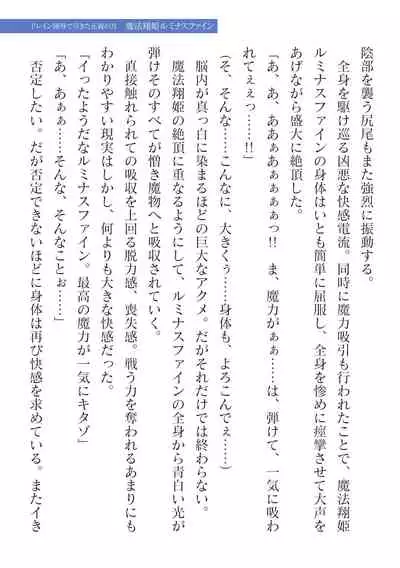 ドレイン凌辱で尽きた正義の力　魔法翔姫ルミナスファイン
陰部を襲う尻尾もまた強烈に振動する。
　全身を駆け巡る凶悪な快感電流。同時に魔力吸引も行われたことで、魔法翔姫
ルミナスファインの身体はいとも簡単に屈服し、全身を惨めに痙攣させて大声を
あげながら盛大に絶頂した。
「あ、あ、ああぁあぁぁぁぁっ!!　ま、魔力がぁぁ……は、弾けて、一気に吸わ
れてぇぇっ……!!」
（そ、そんな……こんなに、大きくぅ……身体も、よろこんでぇ……）
　脳内が真っ白に染まるほどの巨大なアクメ。だがそれだけでは終わらない。
　魔法翔姫の絶頂に重なるようにして、ルミナスファインの全身から青白い光が
弾けそのすべてが憎き魔物へと吸収されていく。
　直接触れられての吸収を上回る脱力感、喪失感。戦う力を奪われるあまりにも
わかりやすい現実はしかし、何よりも大きな快感だった。
「イったようだなルミナスファイン。最高の魔力が一気にキタゾ」
「あ、あぁぁ……そんな、そんなことぉ……」
　否定したい。だが否定できないほどに身体は再び快感を求めている。またイき